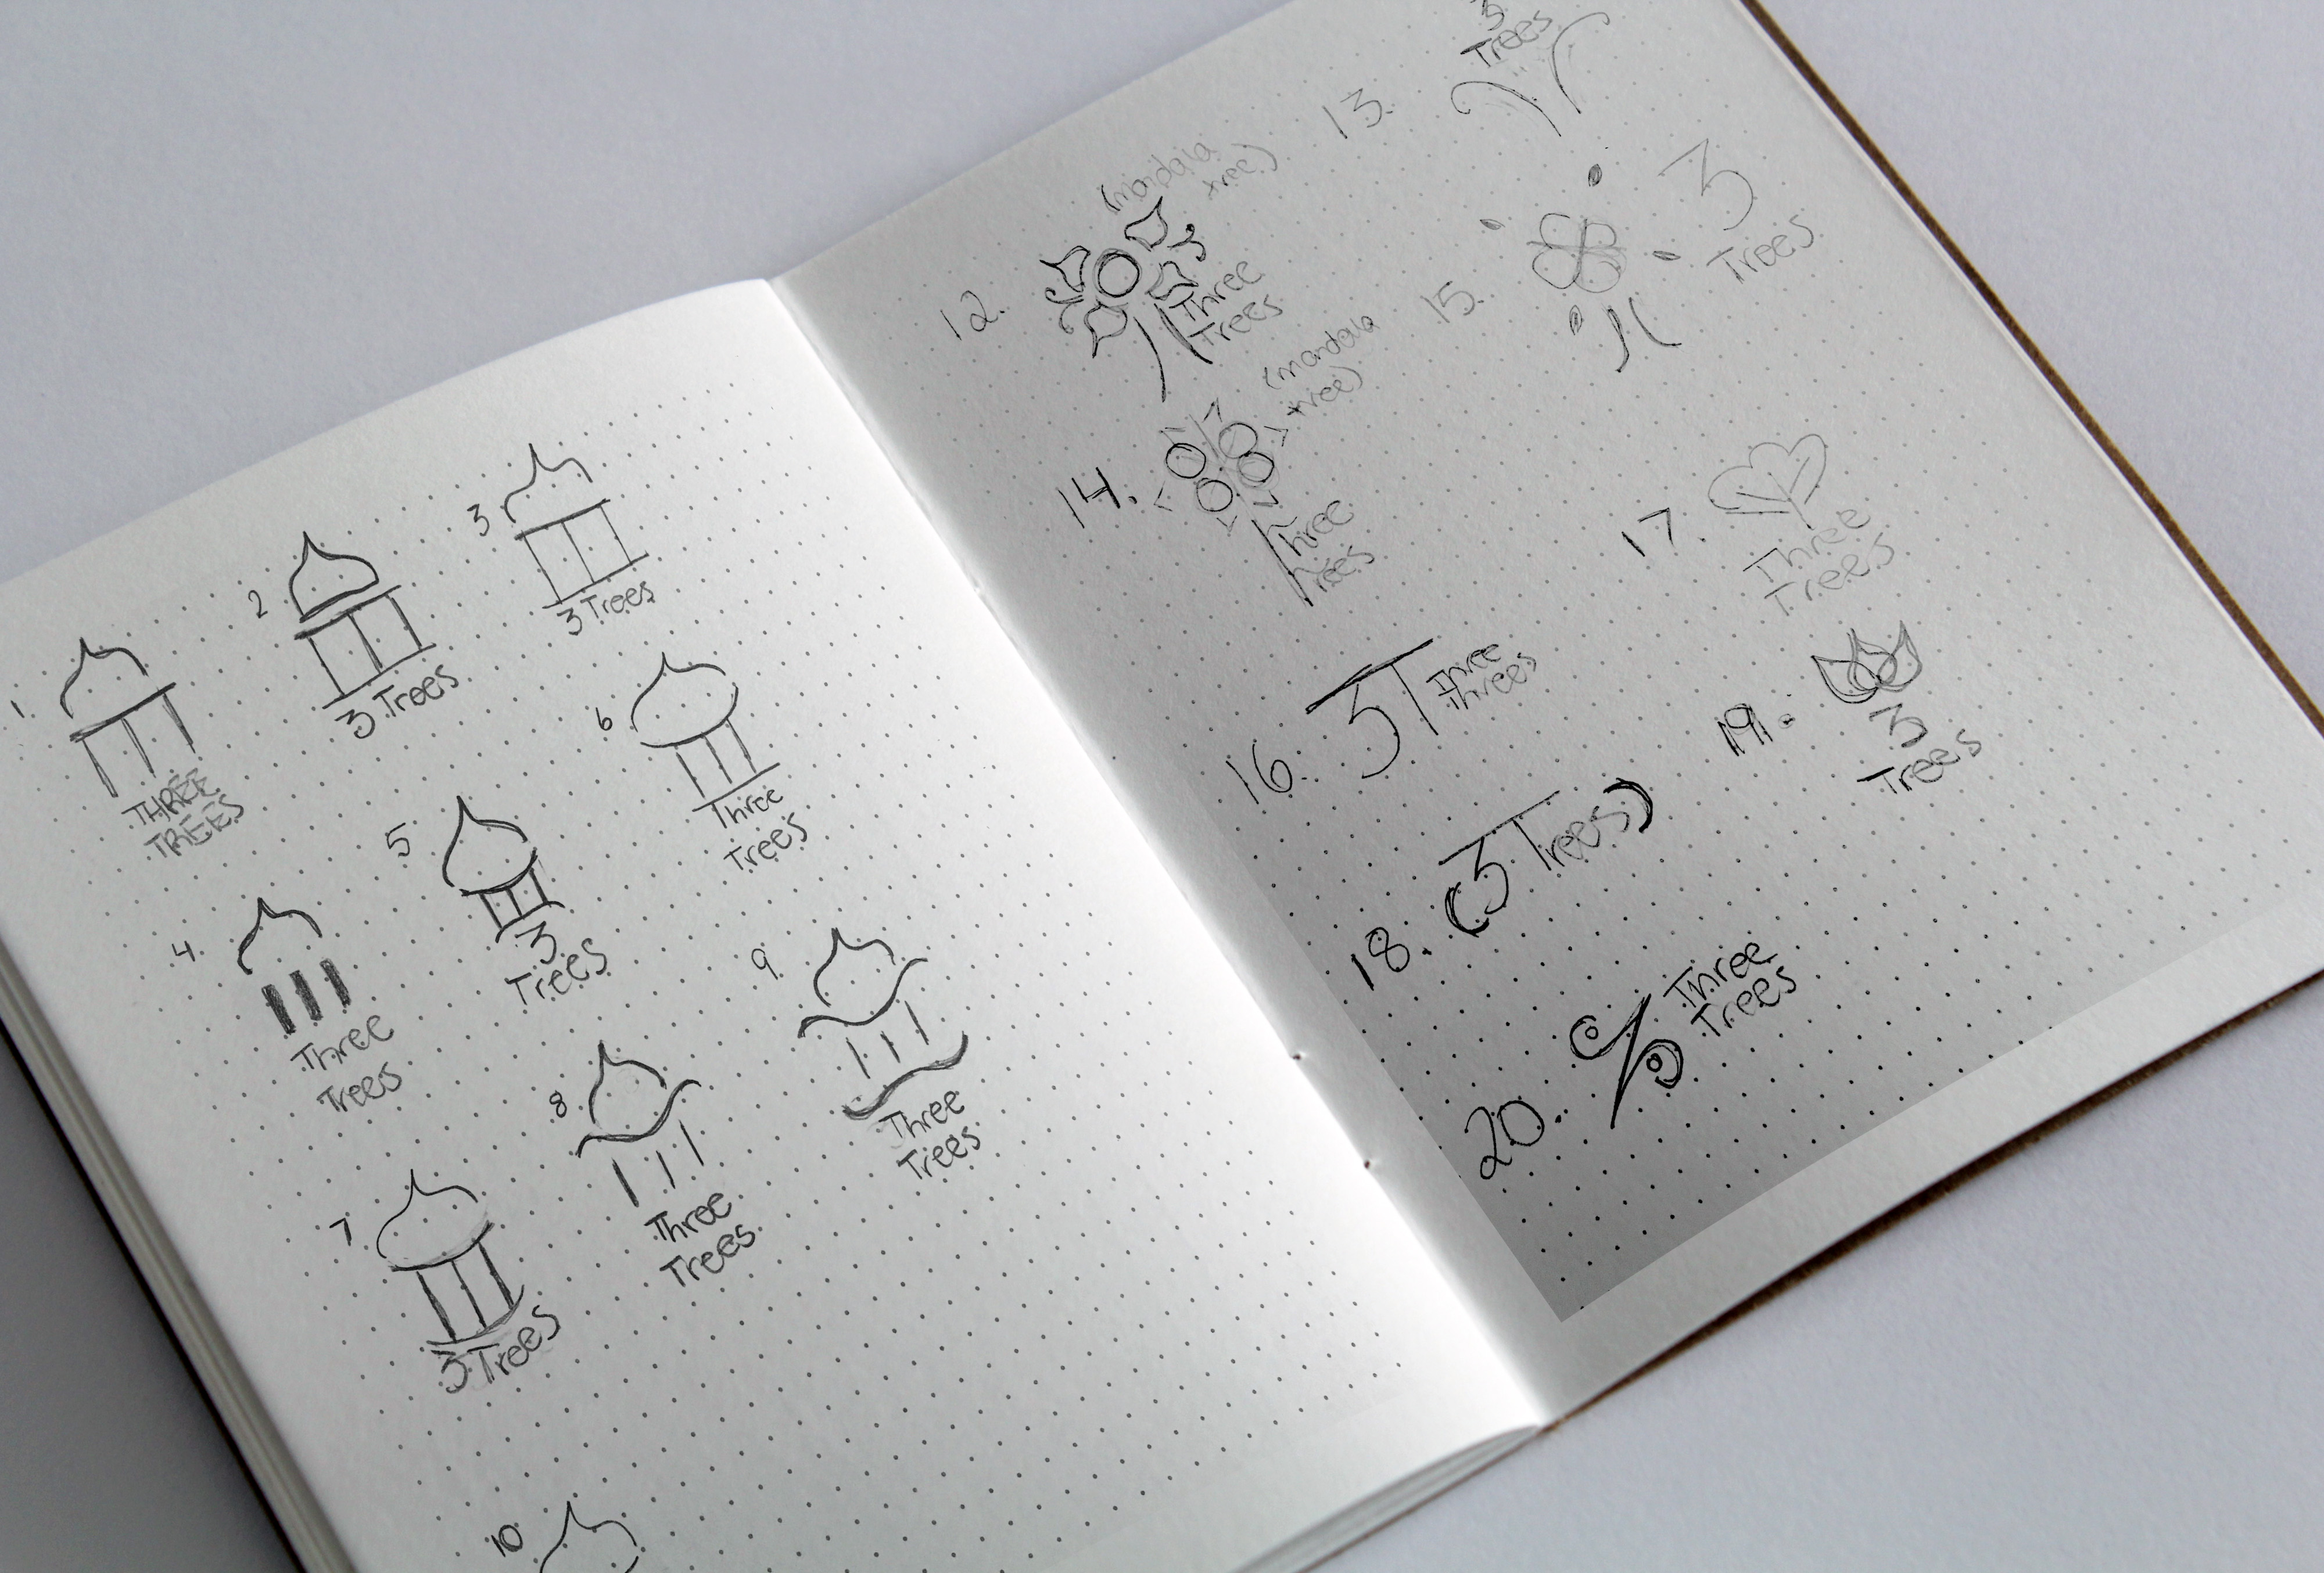 1.
THREE
TREES
2
3 Trees
3
3 Trees
4
Three
Trees
5
3
Trees
6
Three
Trees
7
3 Trees
8
Three
Trees
9
Three
Trees
10
12.
(mandala
tree)
Three
Trees
13.
3
Trees
14.
(mandala
tree)
Three
Trees
15.
3
Trees
16.
3T
Three
Threes
17.
Three
Trees
18.
(3 Trees)
19.
3
Trees
20.
Three
Trees